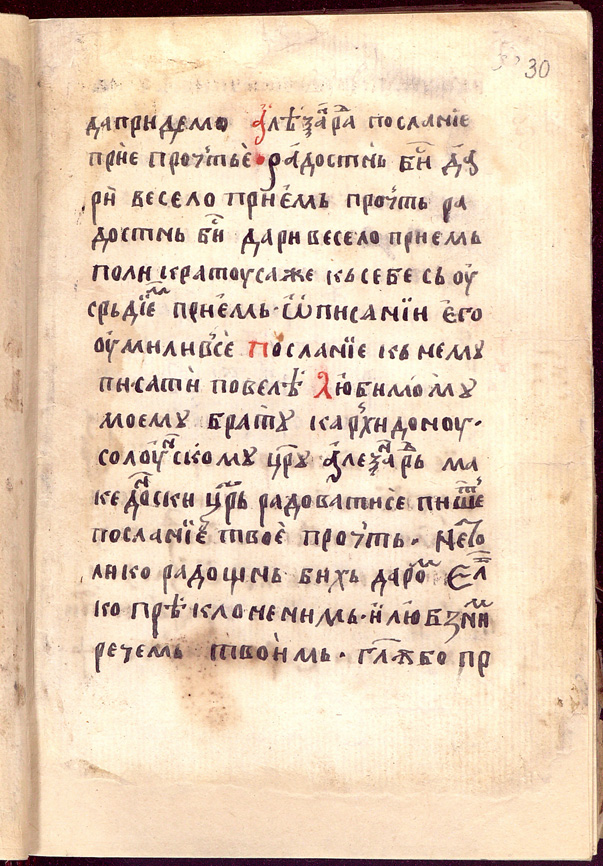 30
да придемь а҆леѯа́дра посланїе
прїе прочьтьє • ра́достнь бы́ и да́
ри́ весело прїе́мь прочьть ра
достнь бы́ дари весело приемь
поликратоуса же къ себе съ оу
срьдїемь прїе́мь· и҆ ѡ҆ писанїи є҆го
оу҆милив́се посланїе кь нему
писати повелѣ любимому
моему брату кархидоноу·
солоу́нскому цр҃у а҆леѯа́ндрь ма
кедо́нски цр҃ь радоватисе пише́ть
посланїе твоѐ прочьть·
лико радощнь бихь даро́м Ели
ко прѣклоненимь· и҆ любзними
речемь твои҆мь· гл҃ѫбо пр